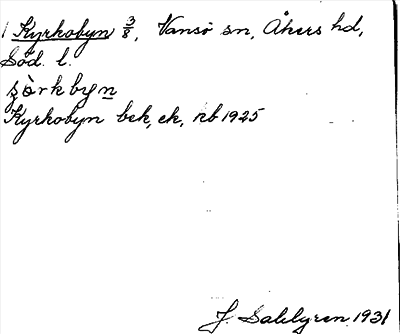 1 Kyrkobyn 3/8, Vansö sn, Åkers hd,
Söd. l.
çàrkbyn
Kyrkobyn bek, ek, rb 1925
J. Sahlgren 1931